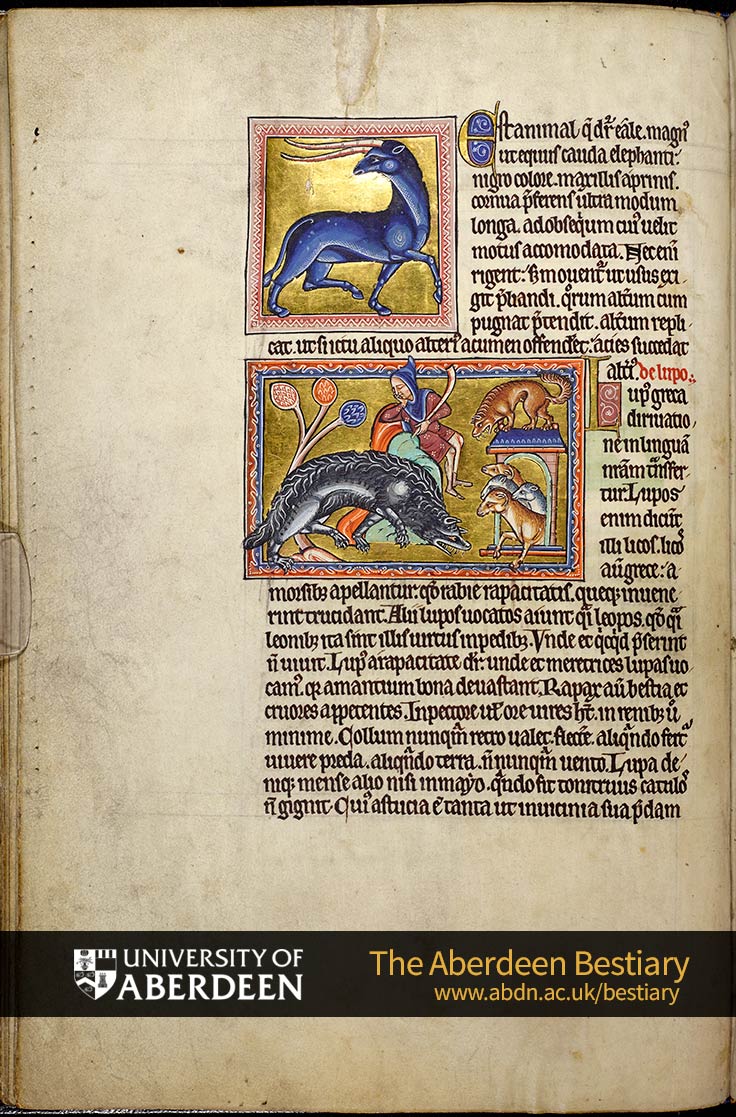 Est animal q̃ dr̃ eâle. magn᷒
ut equus cauda elephanti.
nigro colore. maxillis aprinis.
cornua p̃ferens ultra modum
longa. ad obseq̃um cui᷒ uelit
motus accomodata. Nec eni᷒
rigent: s̃ mouent᷒ ut usus exi
git p̃liandi. q̃rum alt᷒um cum
pugnat p̃tendit. alt᷒um repli
cat. ut si ictu aliquo alteri᷒ acumen offender̃. acies succedat
alt᷒i. de lupo.
Lup᷒ greca
diriuatio
ne in linguã
nr̃am t̃nsfer
tur. Lupos
enim dicũt
illi licos. lico᷒
aũ grece: a
morsib᷒ apellantur. q̃d rabie rapacitatis. queq᷒ inuene
rint trucidant. Alii lupos uocatos aiunt q̃i leopos. q̃d q̃i
leonib᷒ ita sint illis uirtus in pedib᷒. Vnde et q̃cq̃d p̃sserint
ñ uiuit. Lup᷒ a rapacitate dr̃. unde et meretrices lupas uo
cam᷒. q̃ amantium bona deuastant. Rapax aũ bestia et
cruores appetentes. In pectore ut̃ ore uires ht̃. in renib᷒ ũ
minime. Collum nunq̃m retro ualet flectere. aliq̃ndo fert᷒
uiuere preda. aliq̃ndo terra. ñ nunq̃m uento. Lupa de
niq᷒ mense alio nisi in mayo. q̃ndo fit tonitruus catulo᷒
ñ gignit. Cui᷒ astucia ẽ tanta ut in uicinia sua p̃dam
UNIVERSITY OF
ABERDEEN
The Aberdeen Bestiary
www.abdn.ac.uk/bestiary